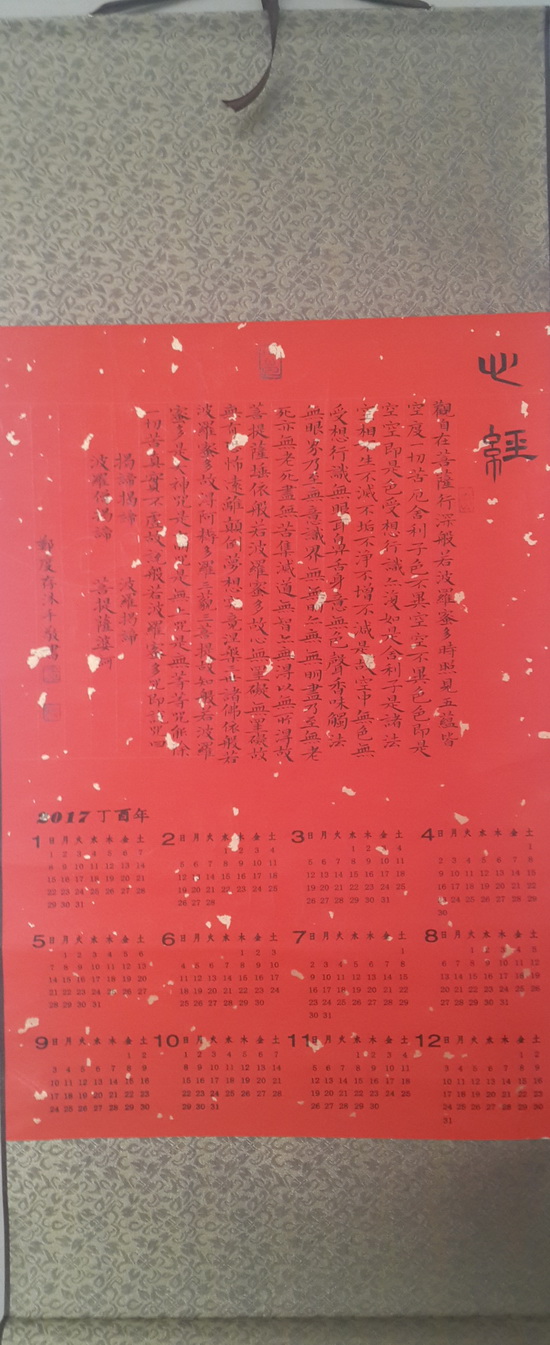 心經
觀自在菩薩行深般若波羅蜜多時照見五蘊皆
空度一切苦厄舍利子色不異空空不異色色即是
空空即是色受想行識亦復如是舍利子是諸法
空相不生不滅不垢不淨不增不減是故空中無色無
受想行識無眼耳鼻舌身意無色聲香味觸法
無眼界乃至無意識界無無明亦無無明盡乃至無老
死亦無老死盡無苦集滅道無智亦無得以無所得故
菩提薩埵依般若波羅蜜多故心無罣礙無罣礙故
無有恐怖遠離顛倒夢想究竟涅槃三世諸佛依般若
波羅蜜多故得阿耨多羅三藐三菩提故知般若波羅
蜜多是大神咒是大明咒是無上咒是無等等咒能除
一切苦真實不虛故說般若波羅蜜多咒即說咒曰
揭諦揭諦 波羅揭諦
波羅僧揭諦 菩提薩婆訶
2017 丁酉年
1 日 月 火 水 木 金 土
1 2 3 4 5 6 7
8 9 10 11 12 13 14
15 16 17 18 19 20 21
22 23 24 25 26 27 28
29 30 31
2 日 月 火 水 木 金 土
1 2 3 4
5 6 7 8 9 10 11
12 13 14 15 16 17 18
19 20 21 22 23 24 25
26 27 28
3 日 月 火 水 木 金 土
1 2 3 4
5 6 7 8 9 10 11
12 13 14 15 16 17 18
19 20 21 22 23 24 25
26 27 28 29 30 31
4 日 月 火 水 木 金 土
1
2 3 4 5 6 7 8
9 10 11 12 13 14 15
16 17 18 19 20 21 22
23 24 25 26 27 28 29
30
5 日 月 火 水 木 金 土
1 2 3 4 5 6
7 8 9 10 11 12 13
14 15 16 17 18 19 20
21 22 23 24 25 26 27
28 29 30 31
6 日 月 火 水 木 金 土
1 2 3
4 5 6 7 8 9 10
11 12 13 14 15 16 17
18 19 20 21 22 23 24
25 26 27 28 29 30
7 日 月 火 水 木 金 土
1
2 3 4 5 6 7 8
9 10 11 12 13 14 15
16 17 18 19 20 21 22
23 24 25 26 27 28 29
30 31
8 日 月 火 水 木 金 土
1 2 3 4 5
6 7 8 9 10 11 12
13 14 15 16 17 18 19
20 21 22 23 24 25 26
27 28 29 30 31
9 日 月 火 水 木 金 土
1 2
3 4 5 6 7 8 9
10 11 12 13 14 15 16
17 18 19 20 21 22 23
24 25 26 27 28 29 30
10 日 月 火 水 木 金 土
1 2 3 4 5 6 7
8 9 10 11 12 13 14
15 16 17 18 19 20 21
22 23 24 25 26 27 28
29 30 31
11 日 月 火 水 木 金 土
1 2 3 4
5 6 7 8 9 10 11
12 13 14 15 16 17 18
19 20 21 22 23 24 25
26 27 28 29 30
12 日 月 火 水 木 金 土
1 2
3 4 5 6 7 8 9
10 11 12 13 14 15 16
17 18 19 20 21 22 23
24 25 26 27 28 29 30
31